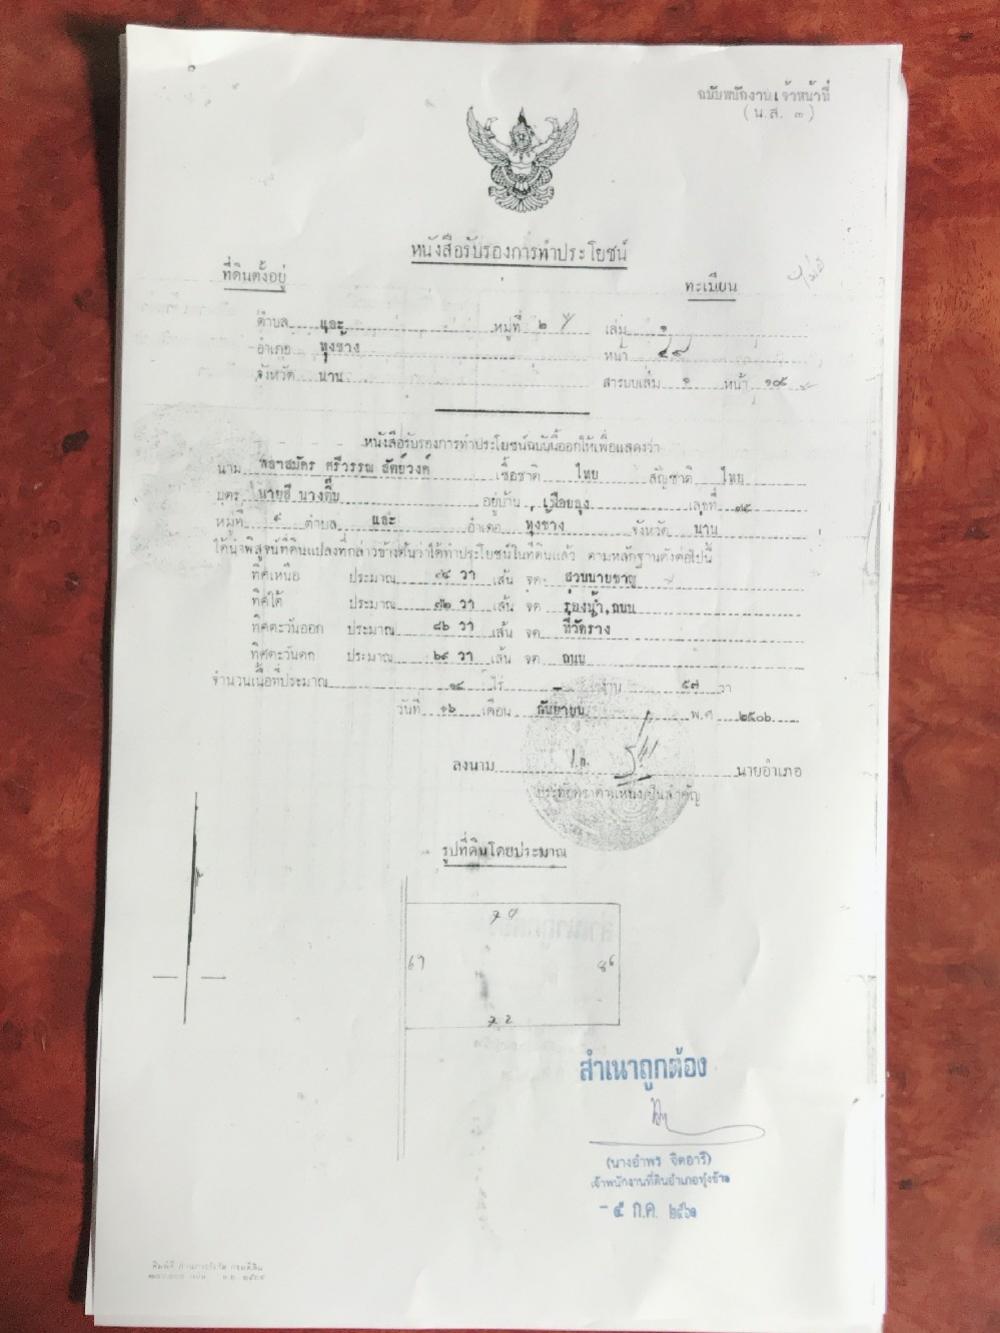 ฉบับพนักงานเจ้าหน้าที่
(น.ส. ๓)
หนังสือรับรองการทำประโยชน์
ที่ดินตั้งอยู่
ทะเบียน
ตำบล และ หมู่ที่ ๒ เล่ม ๑
อำเภอ ทุ่งช้าง หน้า
จังหวัด นาน สารบบเล่ม ๑ หน้า ๑๐๕
หนังสือรับรองการทำประโยชน์ฉบับนี้ออกให้เพื่อแสดงว่า
นาม พลฯสมัคร ศรีวรรณ ชื้อชาติ ไทย สัญชาติ ไทย
บุตร นางตี๊บ อยู่บ้าน เลขที่
หมู่ที่ ตำบล และ อำเภอ ทุ่งช้าง จังหวัด นาน
ได้นำพิสูจน์ที่ดินแปลงที่กล่าวข้างต้นว่าได้ทำประโยชน์ในที่ดินแล้ว ตามหลักฐานดังต่อไปนี้
ทิศเหนือ ประมาณ วา เส้น จด สวนนายชาญ
ทิศใต้ ประมาณ ๗๒ วา เส้น จด ร่องน้ำ,ถนน
ทิศตะวันออก ประมาณ ๘๖ วา เส้น จด ที่วัดราง
ทิศตะวันตก ประมาณ ๖๙ วา เส้น จด ถนน
จำนวนเนื้อที่ประมาณ ๑๔ ไร่ - งาน ๕๗ วา
วันที่ ๑๖ เดือน กันยายน พ.ศ ๒๕๐๖
ลงนาม นายอำเภอ
ประทับตราตำแหน่งเป็นสำคัญ
รูปที่ดินโดยประมาณ
69
86
72
สำเนาถูกต้อง
(นางอำพร จิตอารี)
เจ้าพนักงานที่ดินอำเภอทุ่งช้าง
- ๕ ก.ค. ๒๕๖๑